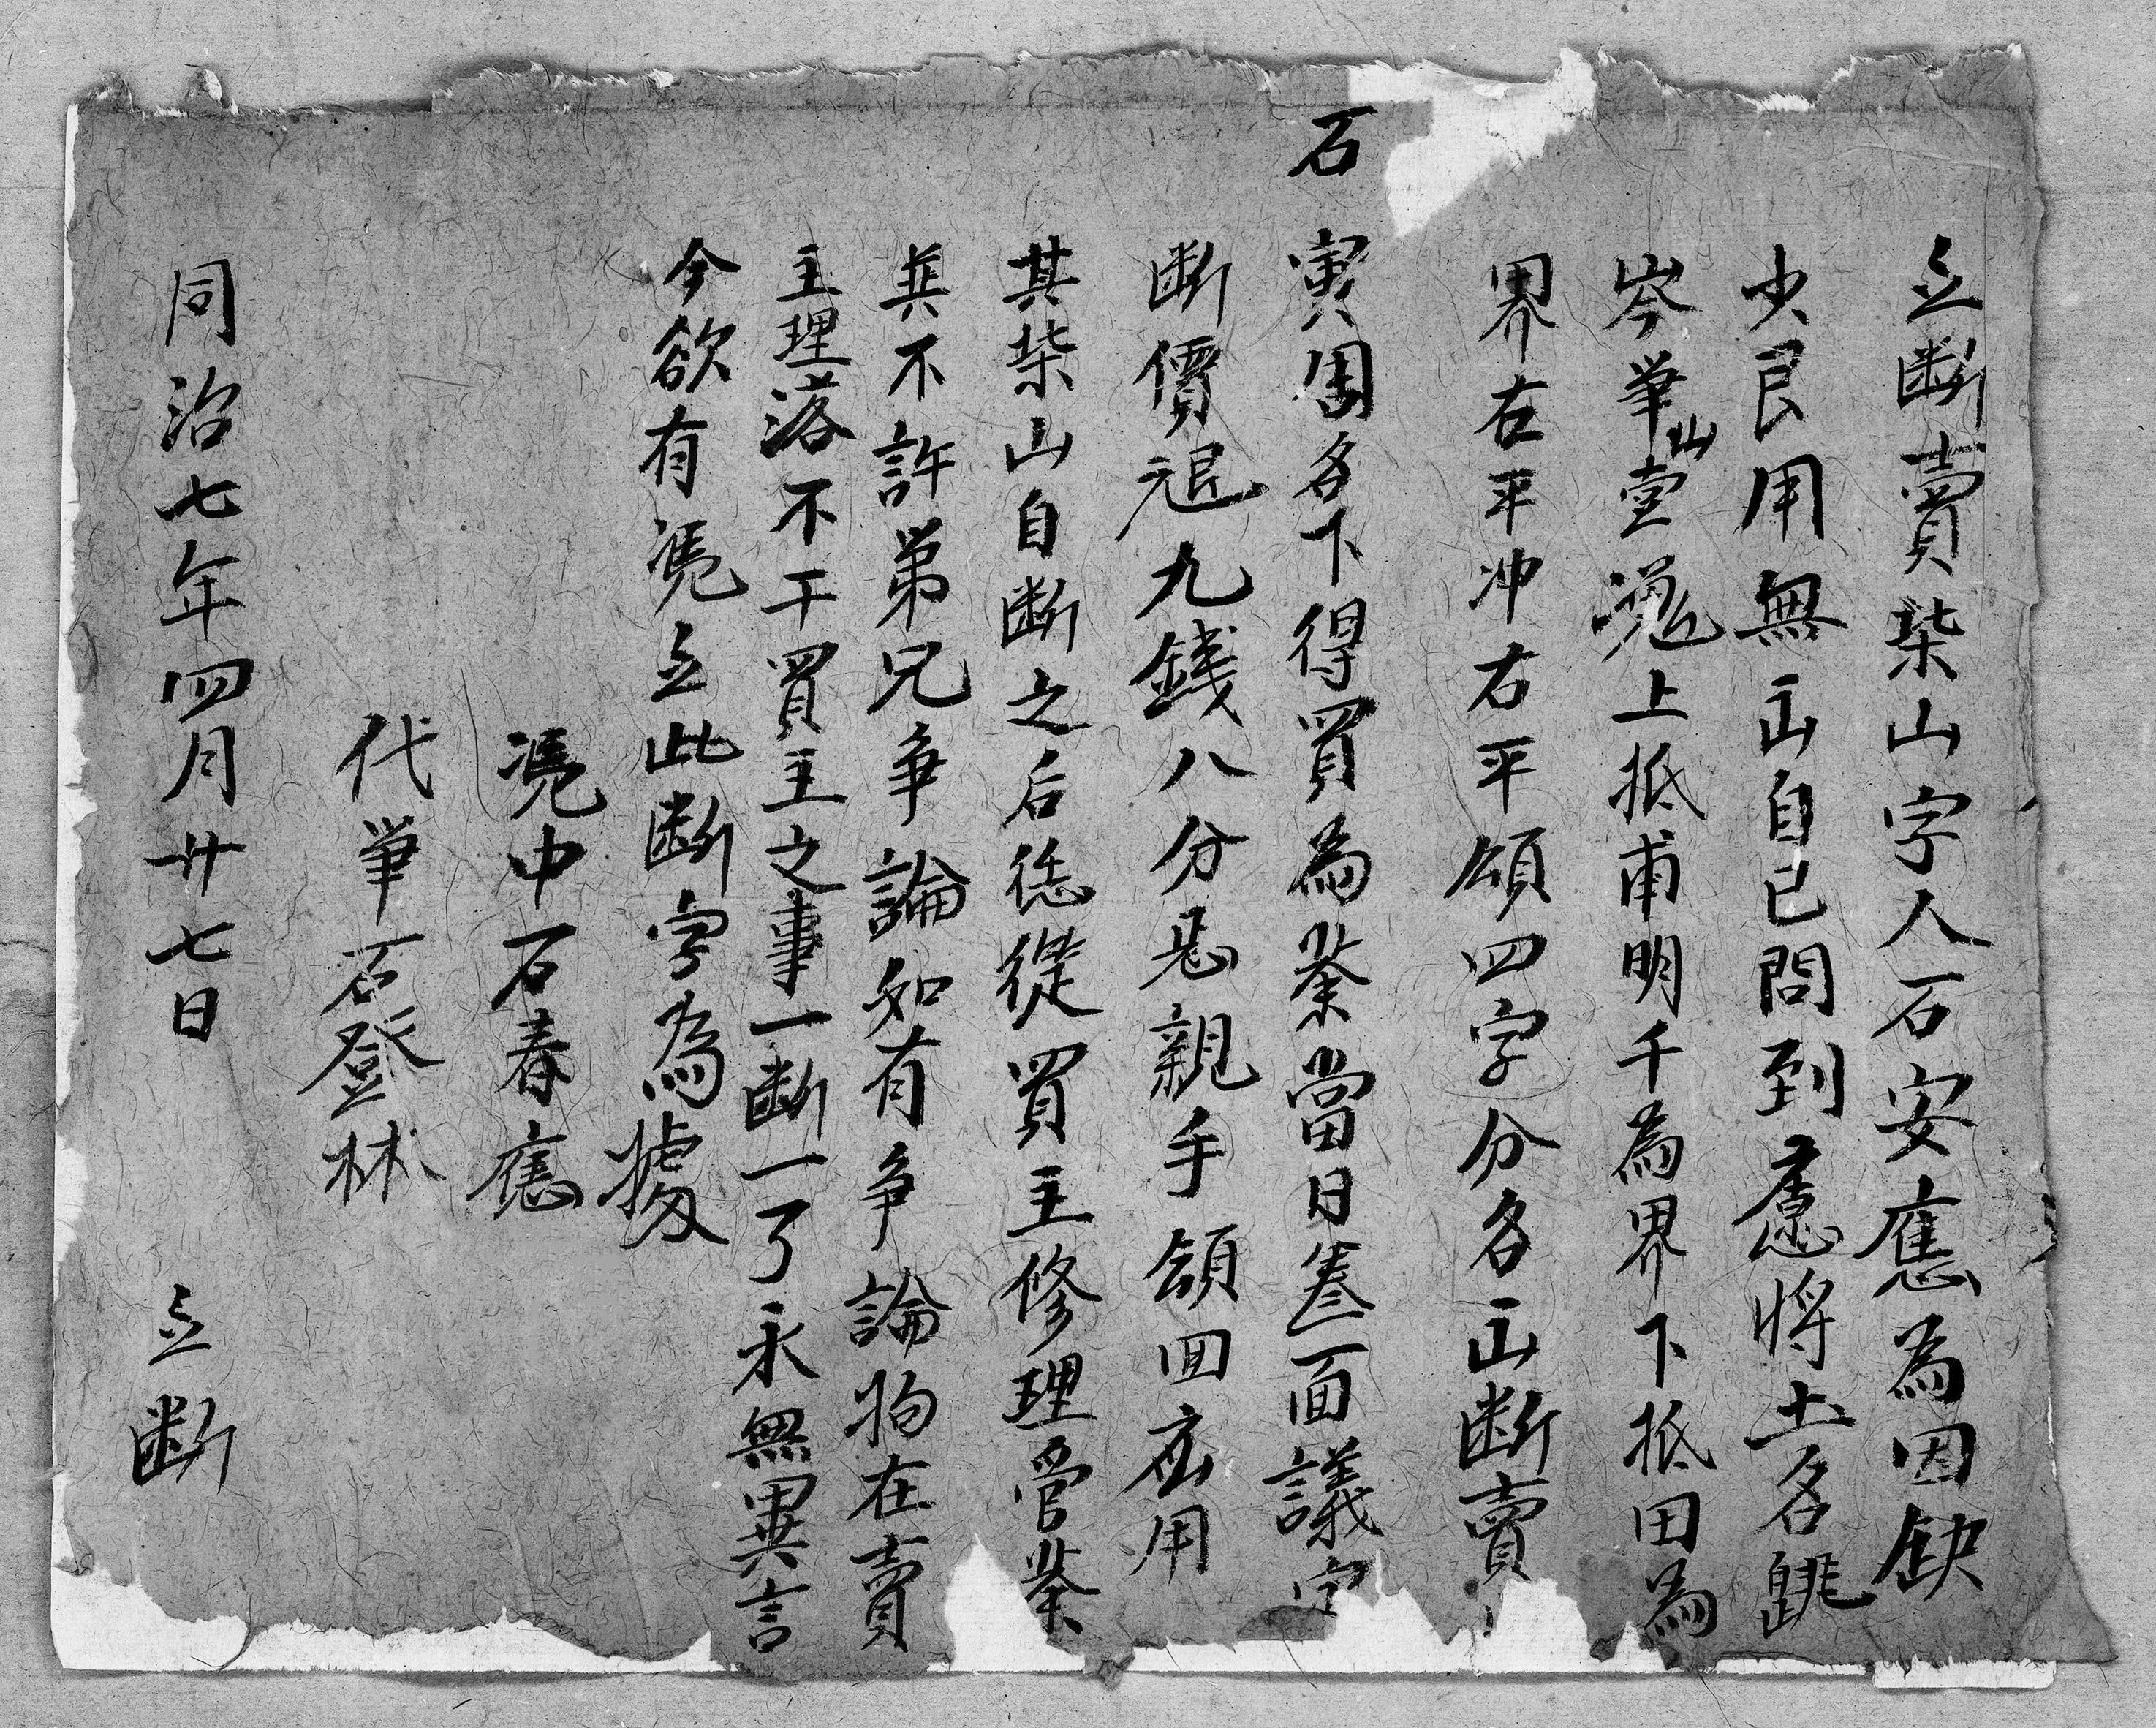 立断賣柴山字人石安應為因缺
少艮用無出自己問到應將土名跳
岑笋山堂塊上抵甫明千為界下抵田為
界左平冲右平領四字分名山断賣
石 寅周名下得買為業當日叁面議定
断價艮九錢八分足親手領回應用
其柴山自断之后恁從買主修理管業
其不許弟兄争論如有争論拘在賣
主理落不干買主之事一断一了永無異言
今欲有憑立此断字為據
憑中石春應
代筆石登林
同治七年四月廿七日 立断